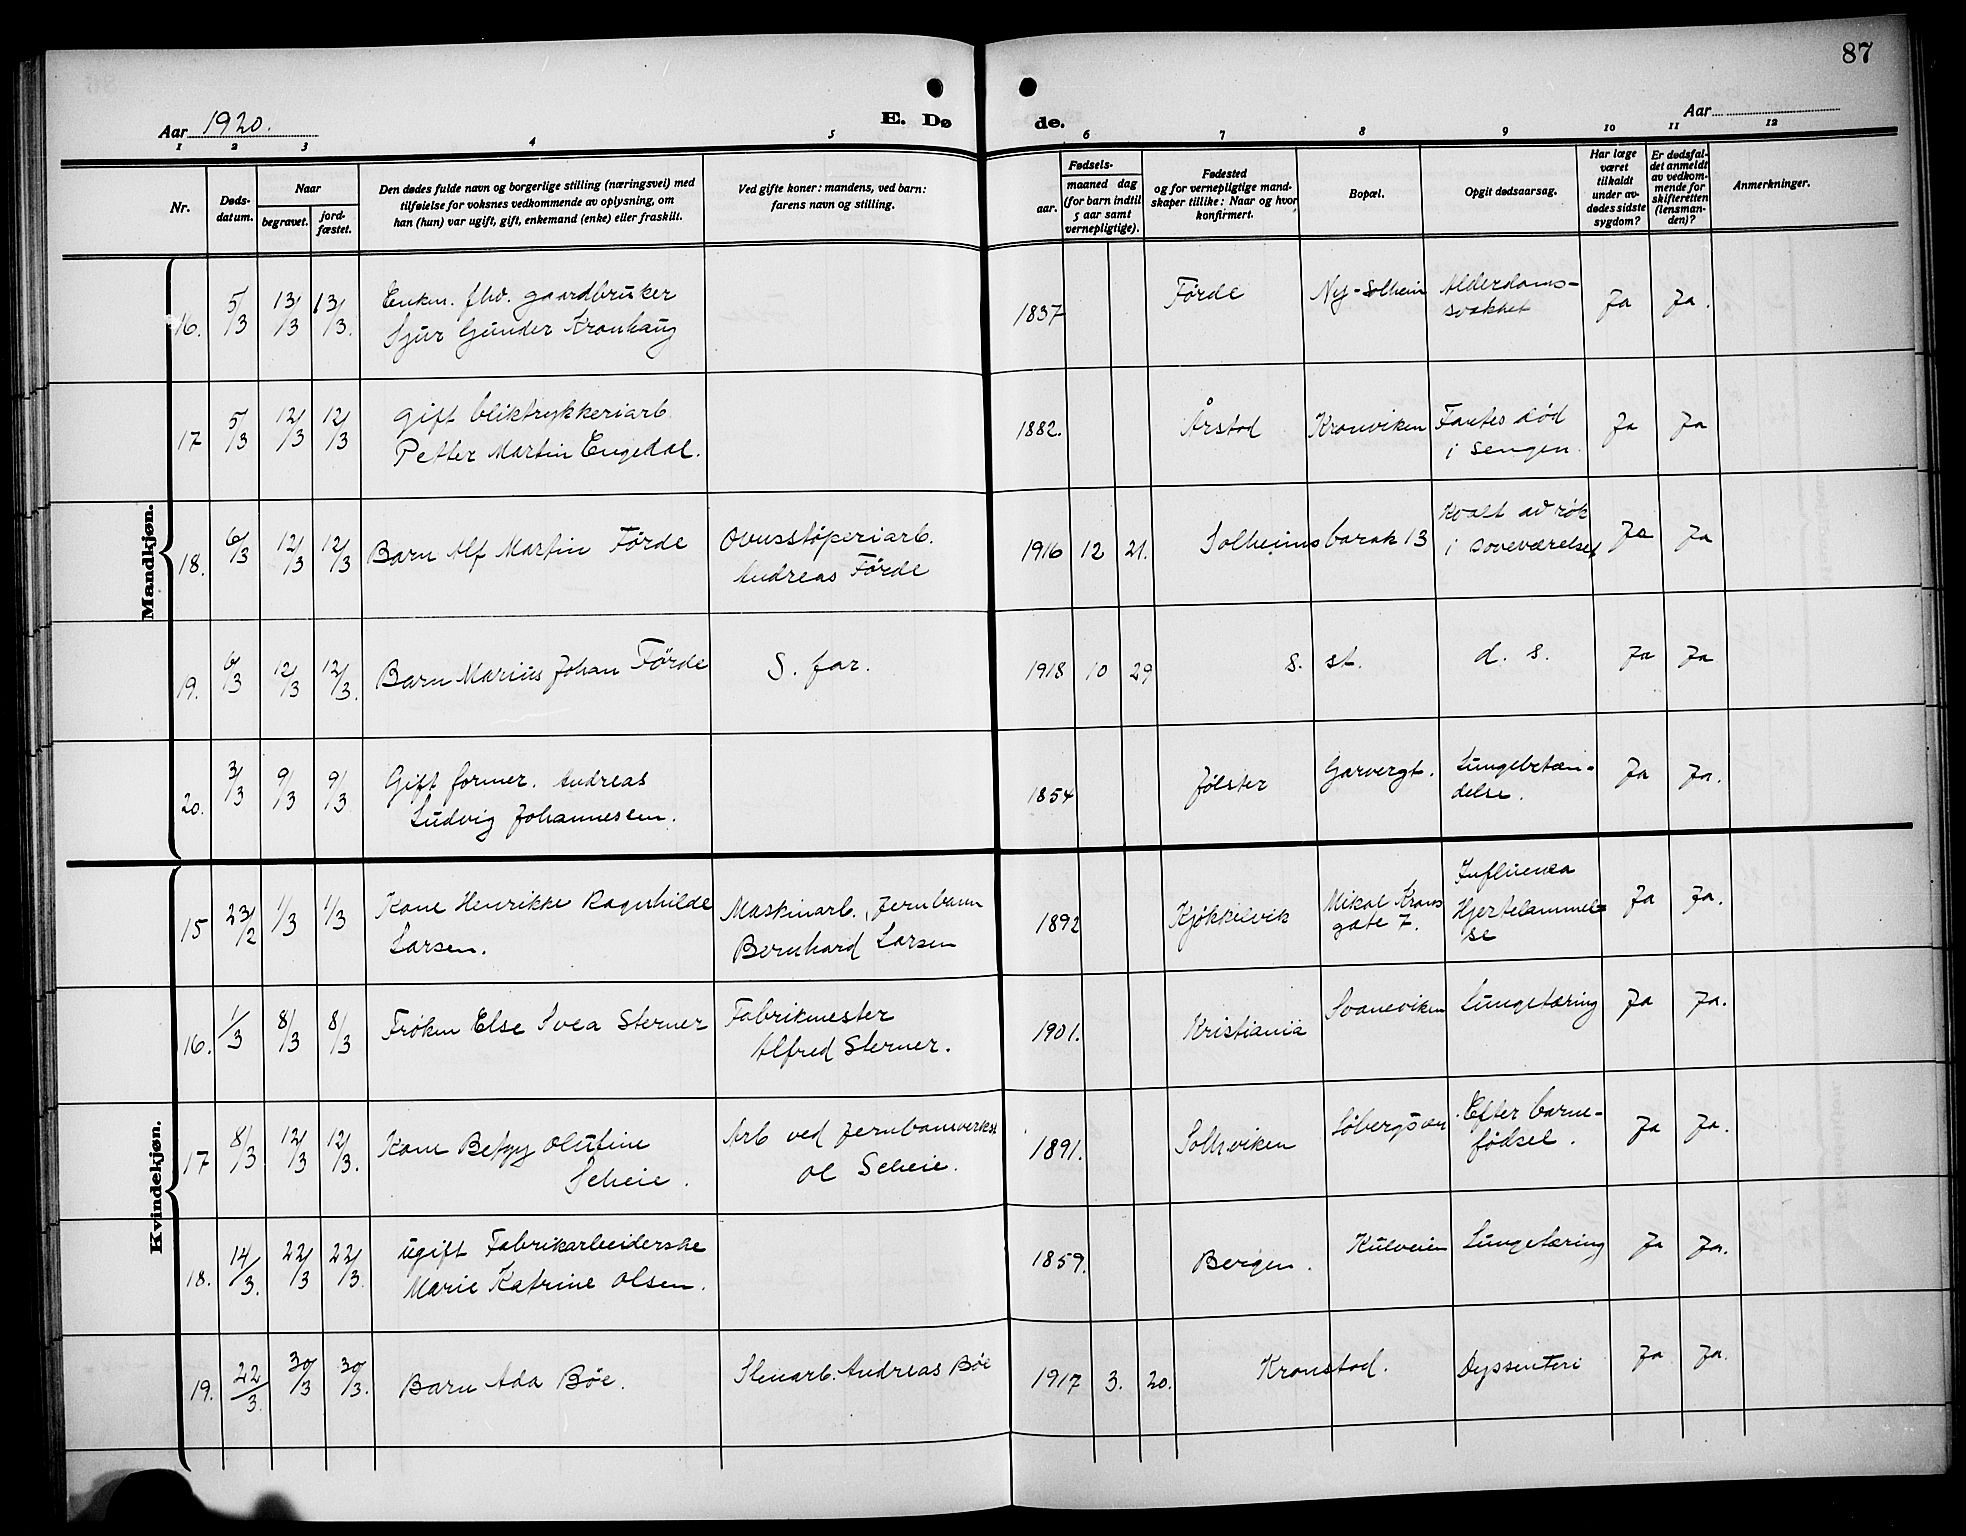 87
Aar 1920.
E. Dø
de.
Aar
1 2 3 4 5 6 7 8 9 10 11 12
Nr.
Døds-
datum.
Naar
begravet.
jord-
fæstet.
Den dødes fulde navn og borgerlige stilling (næringsvei) med
tilføielse for voksnes vedkommende av oplysning, om
han (hun) var ugift, gift, enkemand (enke) eller fraskilt.
Ved gifte koner: mandens, ved barn:
farens navn og stilling.
Fødsels-
aar.
maaned dag
(for barn indtil
5 aar samt
vernepligtige).
Fødested
og for vernepligtige mand-
skaper tillike: Naar og hvor
konfirmert.
Bopæl.
Opgit dødsaarsag.
Har læge
været
tilkaldt
under av-
dødes sidste
sygdom?
Er dødsfal-
det anmeldt
av vedkom-
mende for
skifteretten
(lensman-
den)?
Anmerkninger.
Mandkjøn.
16. 5/3 13/3 13/3. Enkem. fhv. gaardbruker 1837 Førde Ny-Solheim Alderdoms- Ja Ja.
Sjur Gunder Kronhaug svakhet
17 5/3 12/3 12/3 Gift bliktrykkeriarb. 1882. Årstad Kronviken Fantes død Ja Ja
Petter Martin Engedal. i sengen.
18. 6/3 12/3 12/3 Barn Alf Martin Førde Ovnsstøperiarb. 1916 12 21. Solheimsbarak 13 Kvalt av røk Ja Ja
Andreas Førde i soveværelset
19. 6/3 12/3 12/3. Barn Marius Johan Førde S. far. 1918 10 29 s. st. d. s. Ja Ja
20. 3/3 9/3 9/3. Gift former. Andreas 1854 Jølster Garvergt. Lungebetæn- Ja Ja.
Ludvig Johannesen. delse.
Kvindekjøn.
15 23/2 1/3 1/3 Kone Henrikke Ragnhilde Maskinarb. Jernbanen 1892 Kjøkkelvik Mikal Krons Influensa Ja Ja.
Larsen. Bernhard Larsen gate 7. Hjertelammel=
se
16. 1/3 8/3 8/3 Frøken Else Svea Sterner Fabrikmester 1901. Kristiania Svaneviken Lungetæring Ja Ja.
Alfred Sterner.
17 8/3 12/3 12/3. Kone Betzy Olutine Arb ved Jernbaneverkst 1891. Solheviken Søbergsvei Efter barne- Ja Ja.
Scheie. Ol Scheie. fødsel.
18. 14/3. 22/3 22/3. Ugift Fabrikarbeiderske 1859. Bergen. Kulveien Lungetæring Ja Ja.
Marie Katrine Olsen.
19. 22/3. 30/3 30/3. Barn Ada Bøe. Stenarb. Andreas Bøe 1917 3. 20. Kronstad. Dyssenteri Ja Ja.